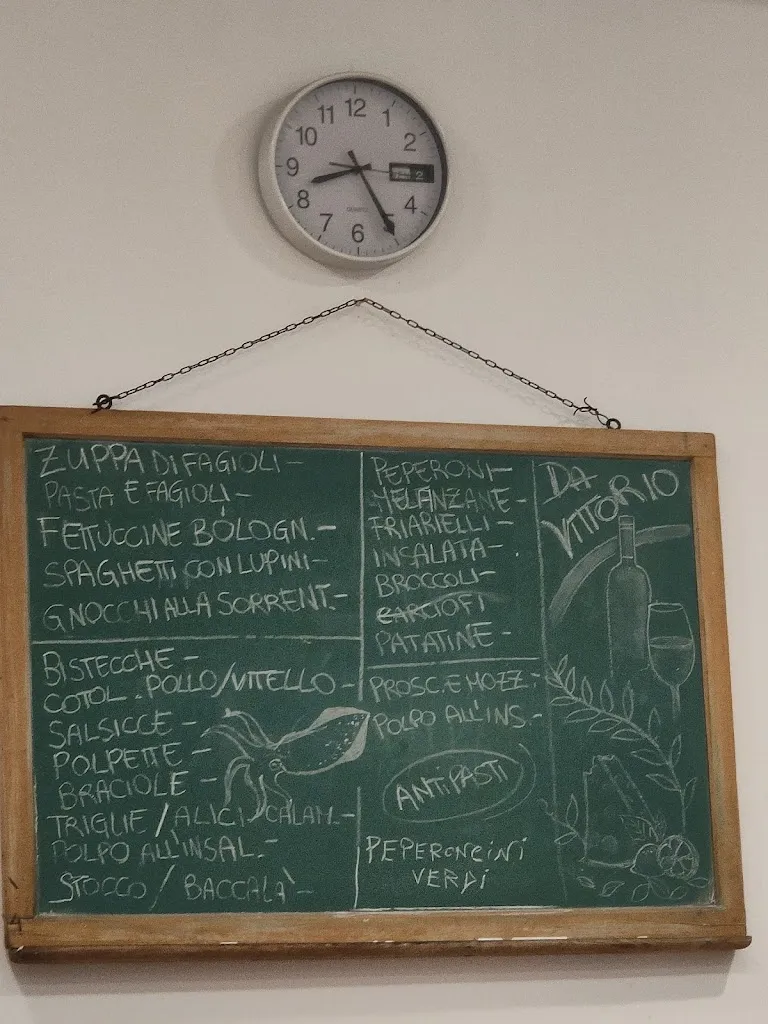 12
11 1
10 2
9 2
8 4
7 5
6
QUARTZ
ZUPPA DI FAGIOLI -
PASTA E FAGIOLI -
FETTUCCINE BOLOGN. -
SPAGHETTI CON LUPINI -
GNOCCHI ALLA SORRENT. -
BISTECCHE -
COTOL. POLLO/VITELLO -
SALSICCE -
POLPETTE -
BRACIOLE -
TRIGLIE / ALICI - CALAM. -
POLPO ALL'INSAL. -
STOCCO / BACCALÀ -
PEPERONI -
MELANZANE -
FRIARIELLI -
INSALATA -
BROCCOLI -
CARCIOFI
PATATINE -
PROSC. E MOZZ. -
POLPO ALL'INS. -
ANTIPASTI
PEPERONCINI
VERDI
DA
VITTORIO